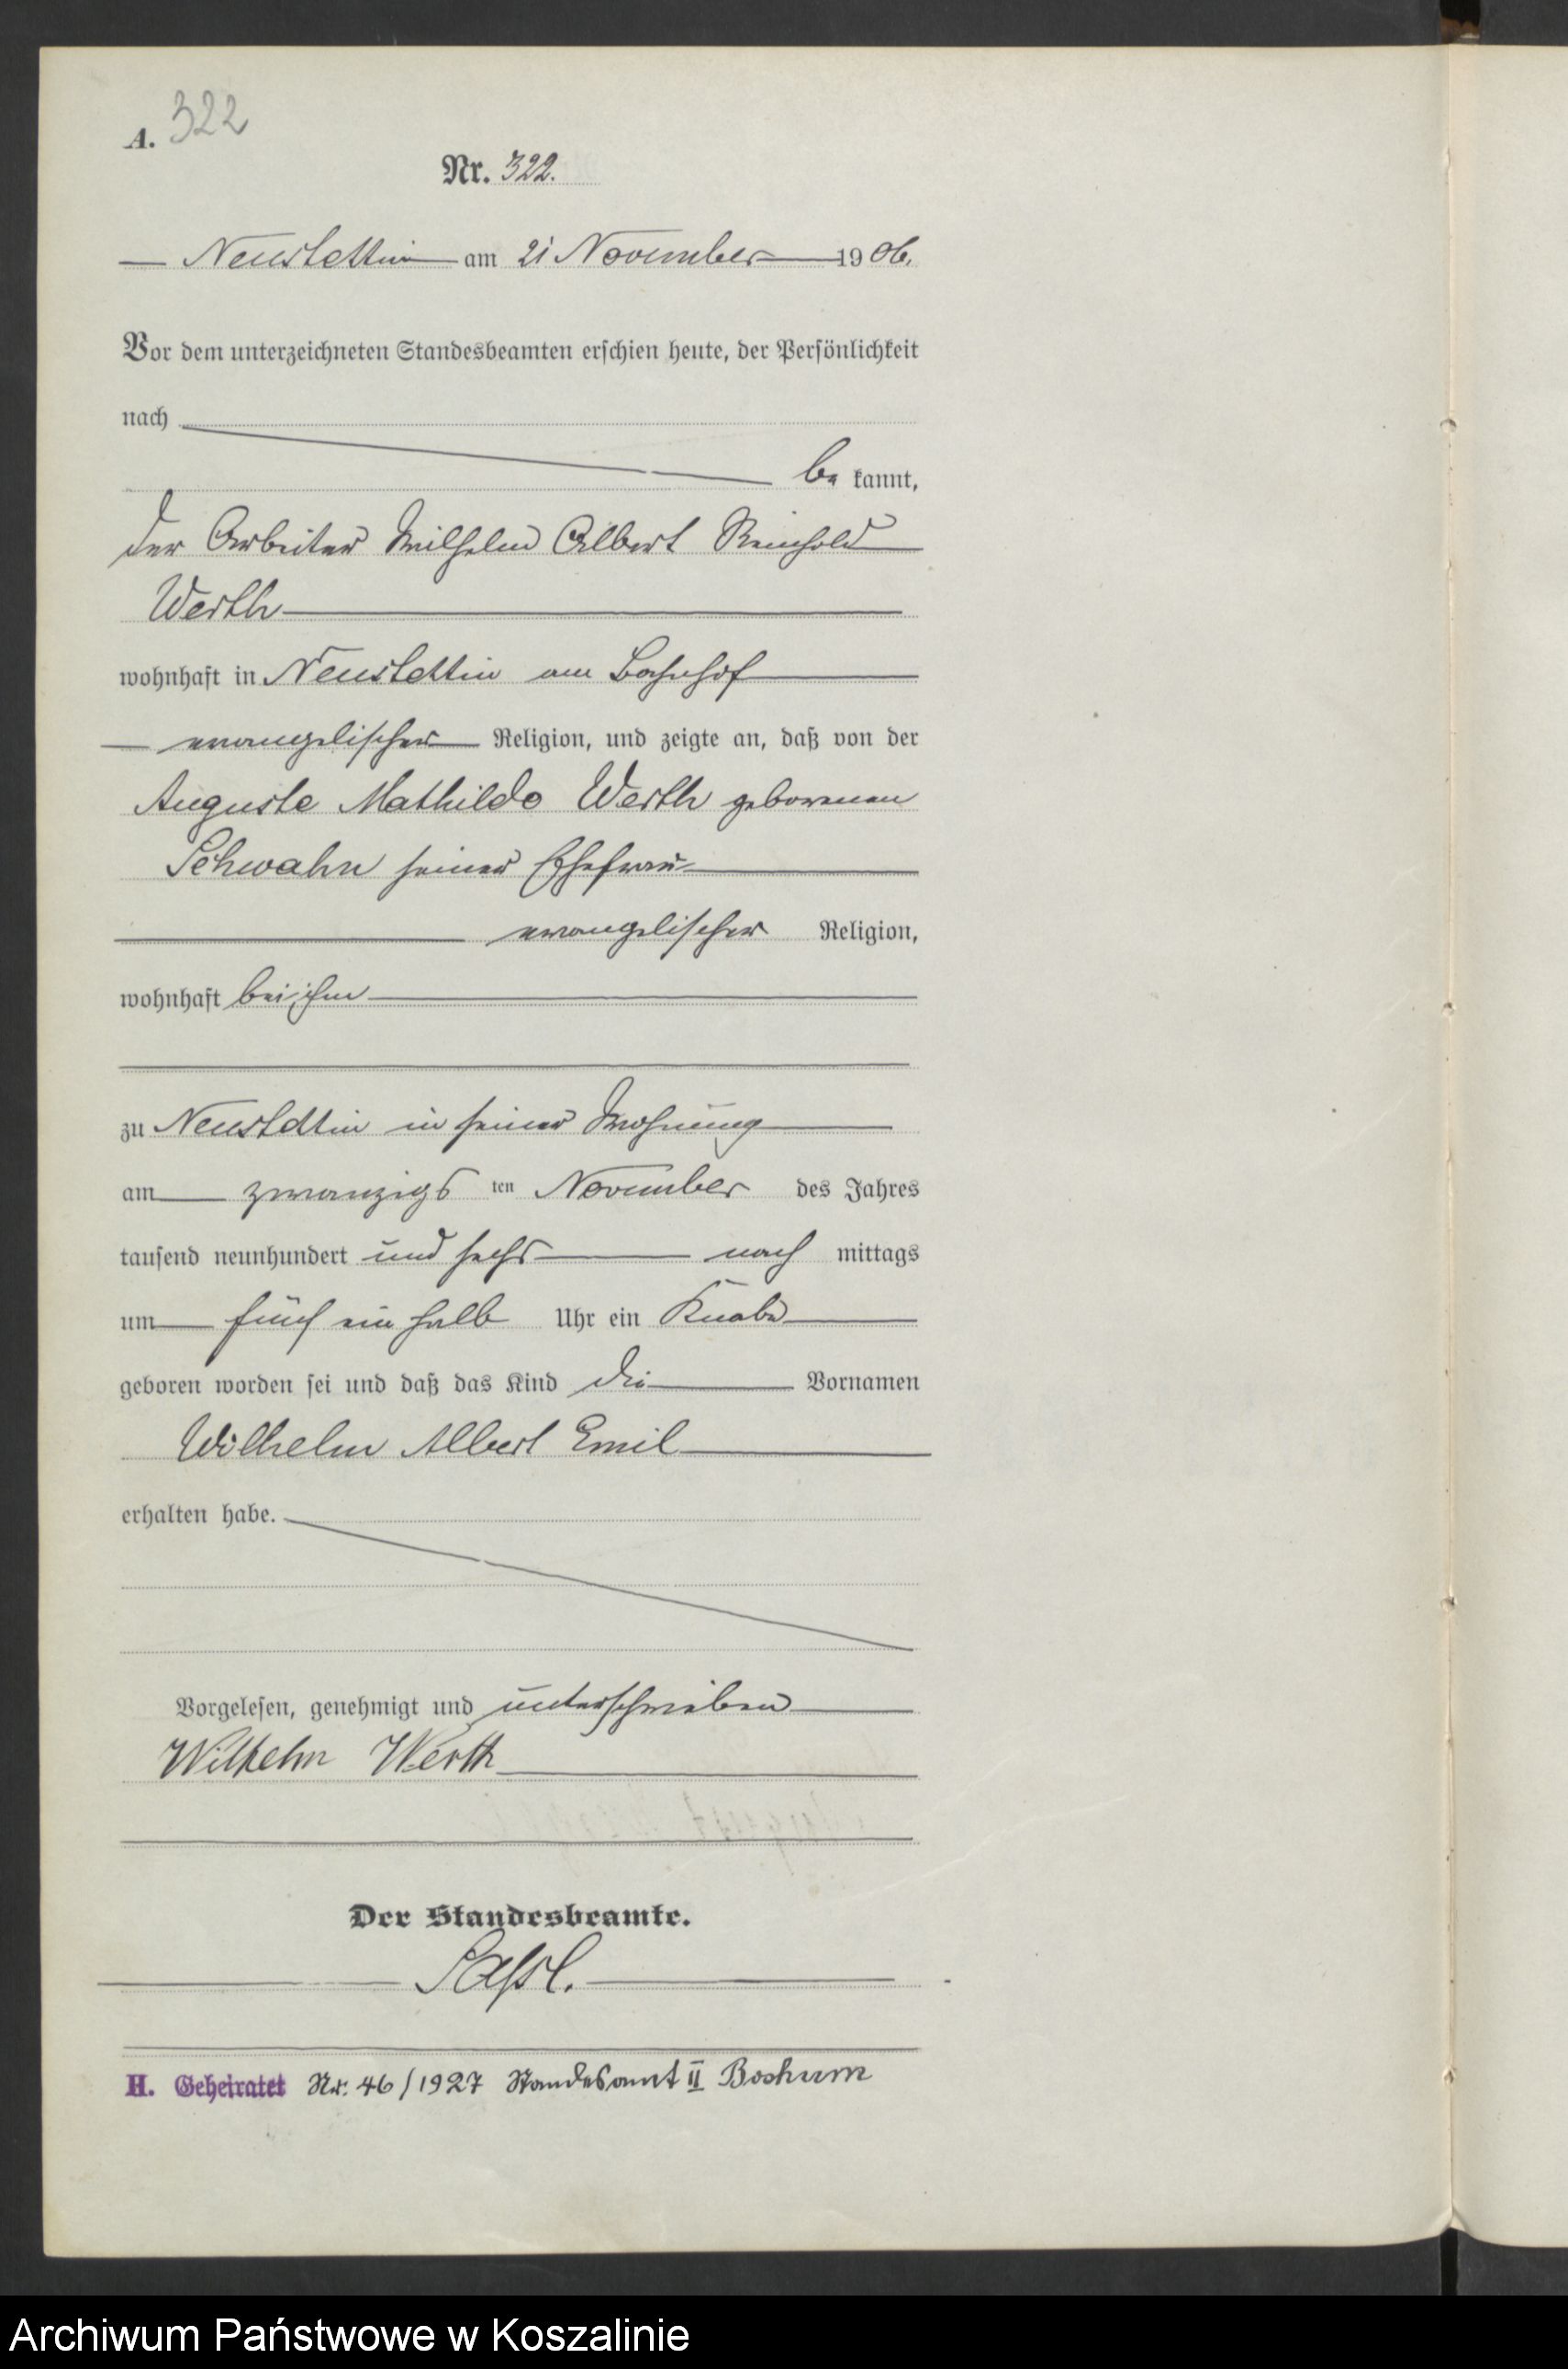 A. 322
Nr. 322.
Neustettin am 21 November 1906.
Vor dem unterzeichneten Standesbeamten erschien heute, der Persönlichkeit
nach
be kannt,
der Arbeiter Wilhelm Albert Reinhold
Werth
wohnhaft in Neustettin am Bahnhof
evangelischer Religion, und zeigte an, daß von der
Auguste Mathilde Werth geborenen
Schwahn seiner Ehefrau
evangelischer Religion,
wohnhaft bei ihm
zu Neustettin in seiner Wohnung
am zwanzigs ten November des Jahres
tausend neunhundert und sechs nach mittags
um fünf ein halb Uhr ein Knabe
geboren worden sei und daß das Kind die Vornamen
Wilhelm Albert Emil
erhalten habe.
Vorgelesen, genehmigt und unterschrieben
Wilhelm Werth
Der Standesbeamte.
H. Geheiratet Nr. 46/1927 Standesamt II Bochum
Archiwum Państwowe w Koszalinie